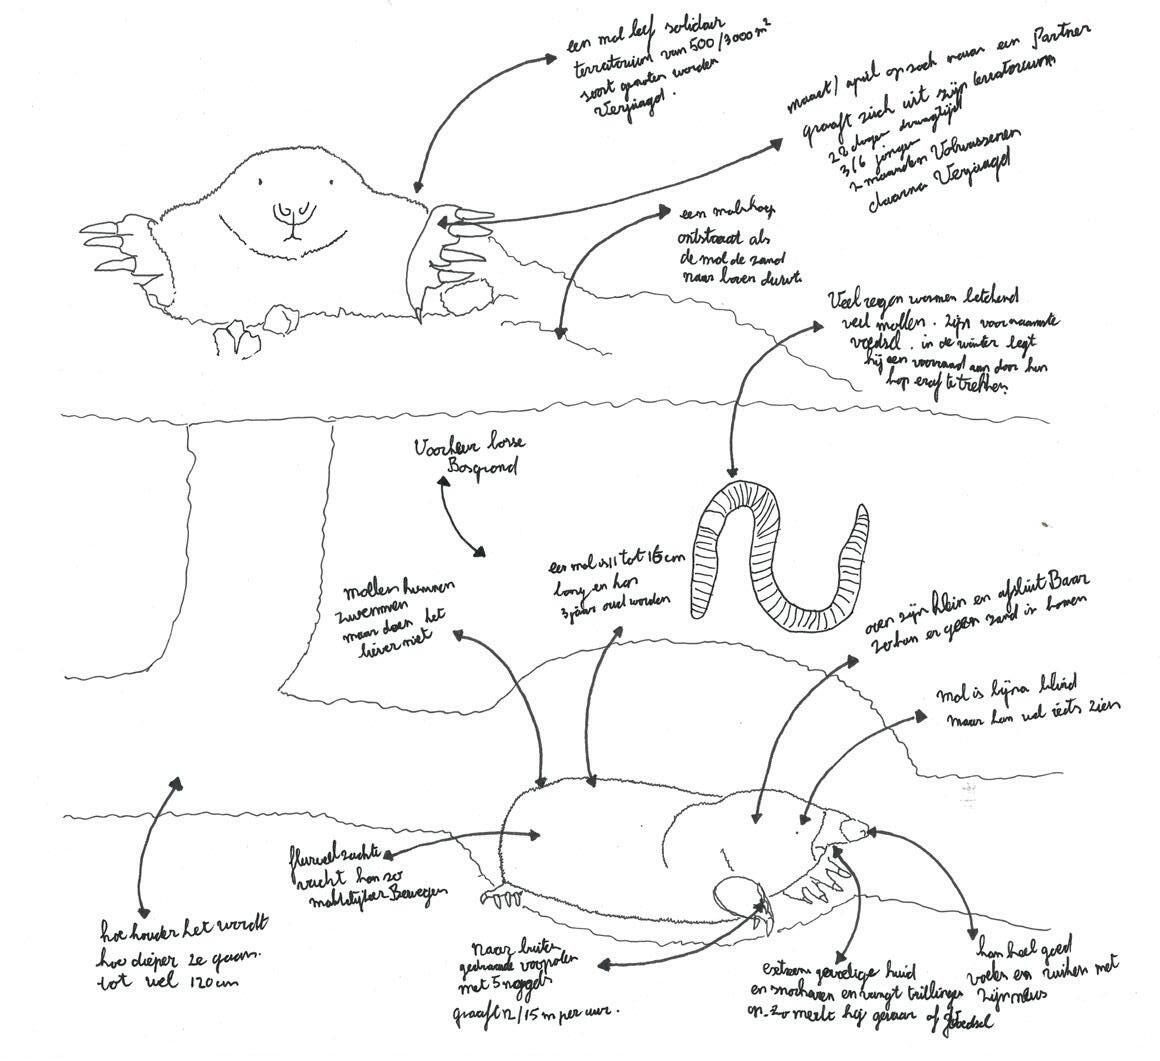 een mol leef solidair
terratorium van 500/3000 m²
soort genoten worden
Verjaagd.
maart/ april op zoek naar een Partner
graaft zich uit zijn terratoriums
28 dagen draagtijd
3/6 jongen
2 maanden Volwassenen
daarna Verjaagd
een molshoop
ontstaat als
de mol de zand
naar boven duwt.
Veel regen wormen betekend
veel mollen. Zijn voornaamste
voedsel. in de winter legt
hij een voorraad aan door hun
kop eraf te trekken.
Voorkeur losse
Bosgrond
mollen kunnen
zwemmen
maar doen het
liever niet
een mol is 11 tot 16 cm
lang en kan
3 jaar oud worden
oren zijn klein en afsluit Baar
zo kan er geen zand in komen
mol is bijna blind
maar kan wel iets zien
fluweel zachte
vacht kan zo
makkelijker Bewegen
hoe kouder het wordt
hoe dieper ze gaan.
tot wel 120 cm
Naar buiten
gedraaide voorpoten
met 5 nagels
graaft 12/15 m per uur.
extreem gevoelige huid
en snorharen en vangt trillingen
op. Zo merkt hij gevaar of voedsel
kan heel goed
voelen en ruiken met
zijn neus